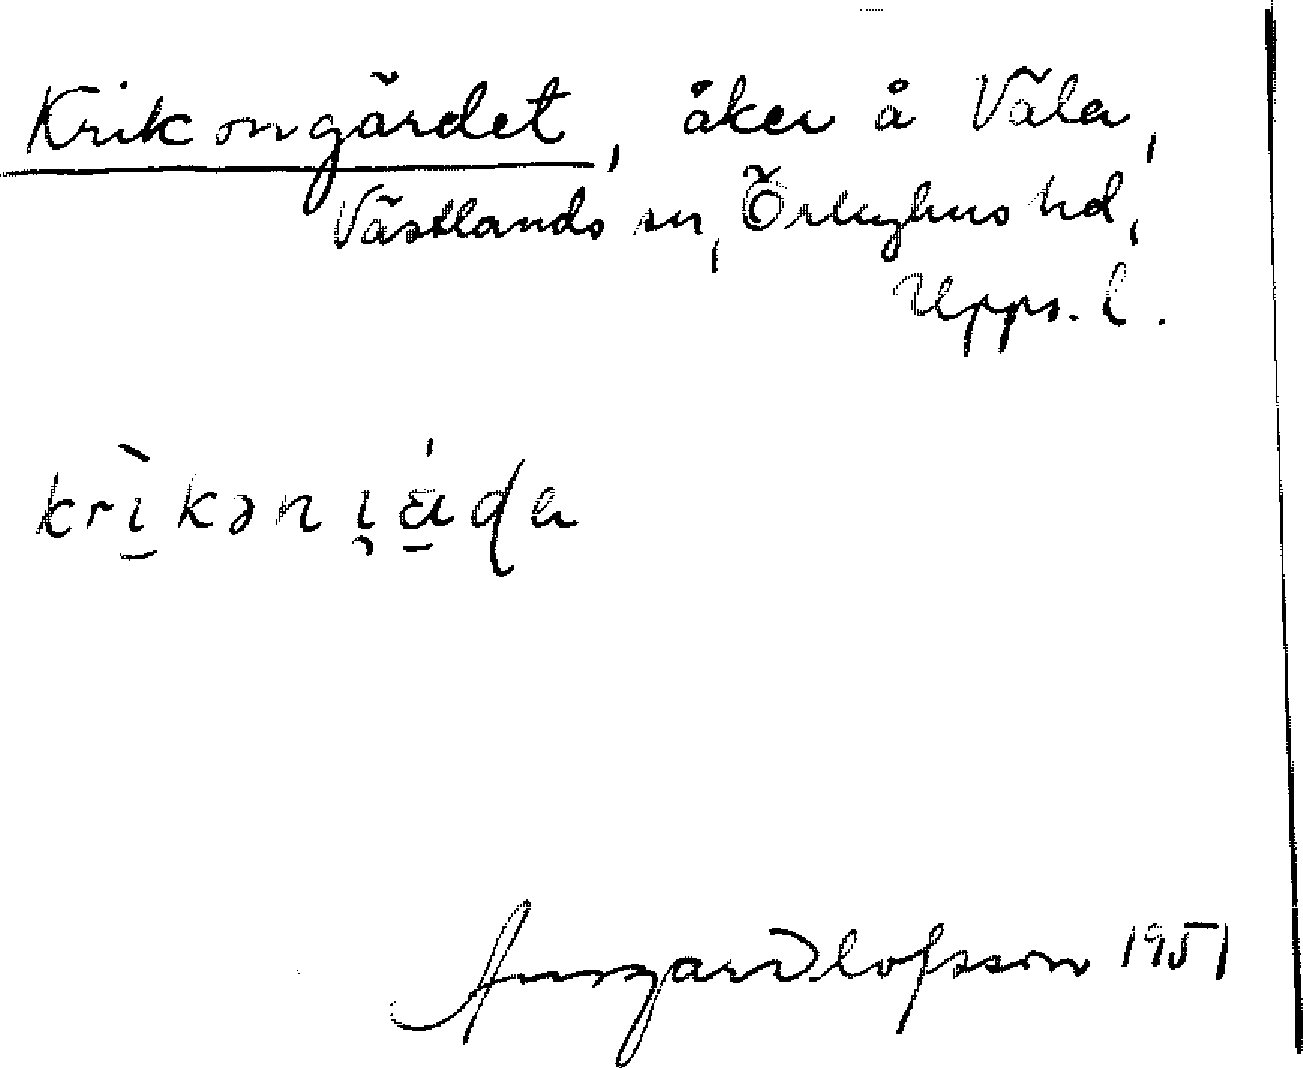 Krikongärdet, åker å Väla,
Västlands sn, Örbyhus hd,
Upps. l.
krìkəni̯ä́ɖa
Ansgar Olofsson 1951